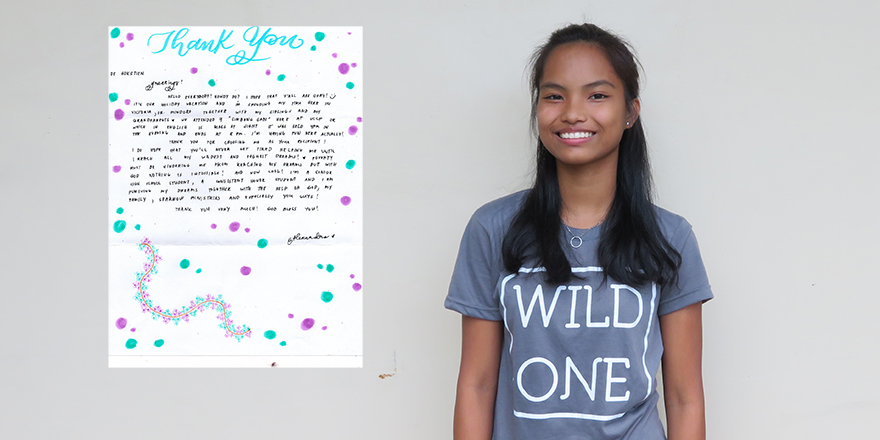 Thank You
Greetings!
HELLO EVERYBODY! HOWDY DO? I HOPE THAT Y'ALL ARE GREAT! :)
IT'S OUR HOLIDAY VACATION AND I'M SPENDING MY STAY HERE IN
VICTORIA, OR. MINDORO TOGETHER WITH MY SIBLINGS AND MY
GRANDPARENTS. WE ATTENDED A "SIMBANG GABI" HERE AT UCCP OR
WHICH IN ENGLISH IS MASS AT NIGHT. IT WAS HELD 4PM IN
THE EVENING AND ENDS AT 6 PM. I'M HAVING FUN HERE ACTUALLY!
THANK YOU FOR CHOOSING ME AS YOUR RECIPIENT!
I DO HOPE THAT YOU'LL NEVER GET TIRED HELPING ME UNTIL
I REACH ALL MY WILDEST AND HIGHEST DREAMS! POVERTY
MUST BE HINDERING ME FROM REACHING MY DREAMS BUT WITH
GOD NOTHING IS IMPOSSIBLE! AND NOW LOOK! I'M A SENIOR
HIGH SCHOOL STUDENT, A CONSISTENT HONOR STUDENT AND I AM
PURSUING MY DREAMS TOGETHER WITH THE HELP OF GOD, MY
FAMILY, SPARROW MINISTRIES AND ESPECIALLY YOU GUYS!
THANK YOU VERY MUCH! GOD BLESS YOU!
WILD
ONE